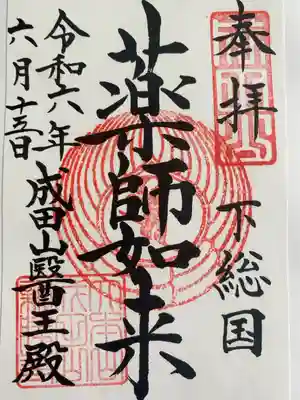 奉拝
下総国
薬師如来
令和六年
六月十三日
成田山醫王殿